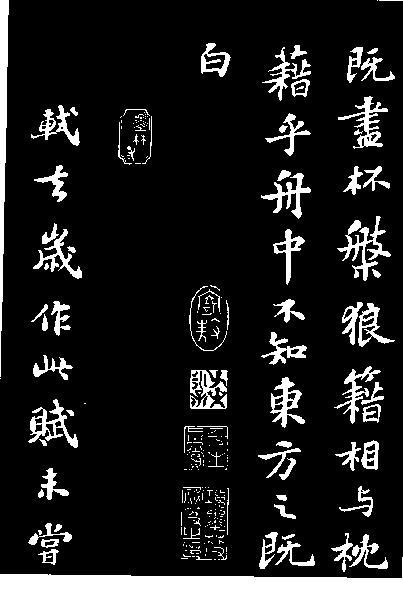 既盡杯槃狼籍相与枕
藉乎舟中不知東方之既
白
軾去歲作此賦未嘗